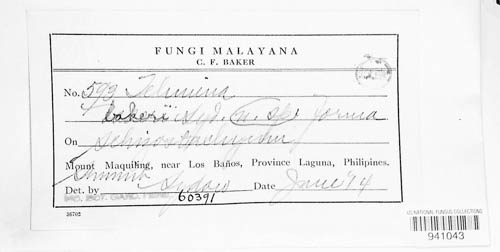 FUNGI MALAYANA
C. F. BAKER
No. 593 Telimena
bakeri Syd. n. sp. Forma
On Schizostachyum
Mount Maquiling, near Los Baños, Province Laguna, Philipines.
Summit
Det. by Sydow Date June '14
60391
36702
US NATIONAL FUNGUS COLLECTIONS
941043